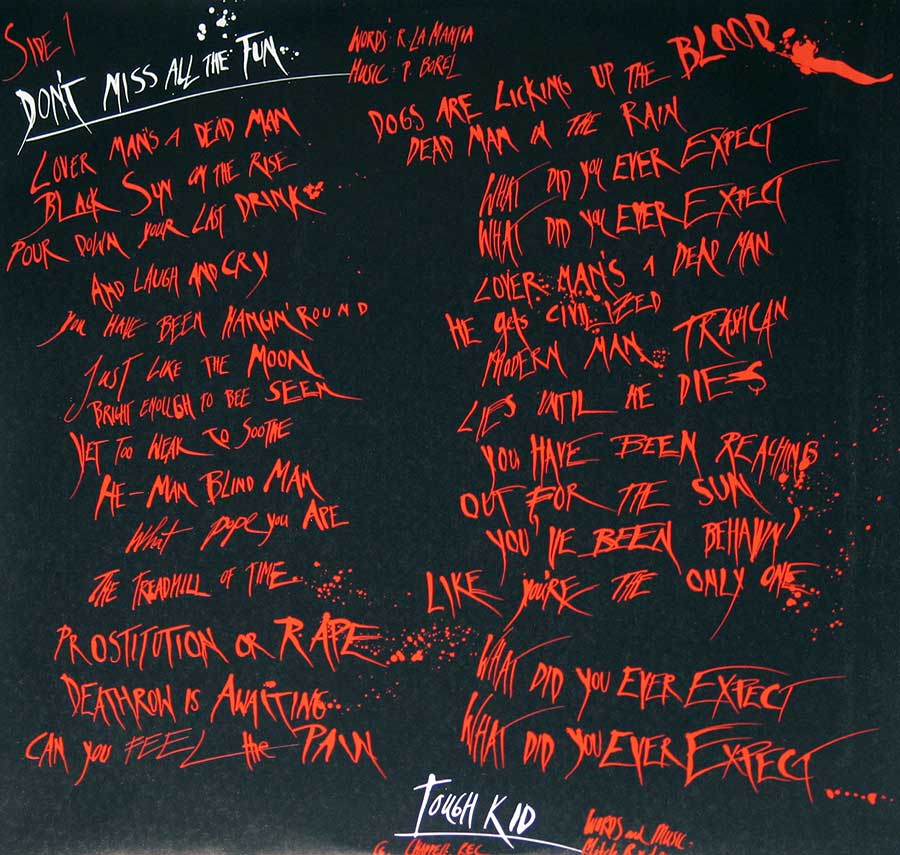 SIDE 1
DON'T MISS ALL THE FUN..
WORDS: R. LA MANTIA
MUSIC: P. BOREL
LOVER MAN'S A DEAD MAN
BLACK SUN ON THE RISE
POUR DOWN YOUR LAST DRINK
AND LAUGH AND CRY
YOU HAVE BEEN HANGIN' ROUND
JUST LIKE THE MOON
BRIGHT ENOUGH TO BEE SEEN
YET TOO WEAK TO SOOTHE
HE-MAN BLIND MAN
What pope you APE
THE TREADMILL OF TIME
PROSTITUTION OR RAPE
DEATHROW IS AWAITING
CAN YOU FEEL the PAIN
DOGS ARE LICKING UP THE BLOOD
DEAD MAN IN THE RAIN
WHAT DID YOU EVER EXPECT
WHAT DID YOU EVER EXPECT
LOVER MAN'S A DEAD MAN
HE gets CIVILIZED
MODERN MAN TRASHCAN
LIES UNTIL HE DIES
YOU HAVE BEEN REACHING
OUT FOR THE SUN
YOU'VE BEEN BEHAVIN'
LIKE YOU'RE THE ONLY ONE
WHAT DID YOU EVER EXPECT
WHAT DID YOU EVER EXPECT
TOUGH KID
WORDS and MUSIC:
CHAPPELL REC